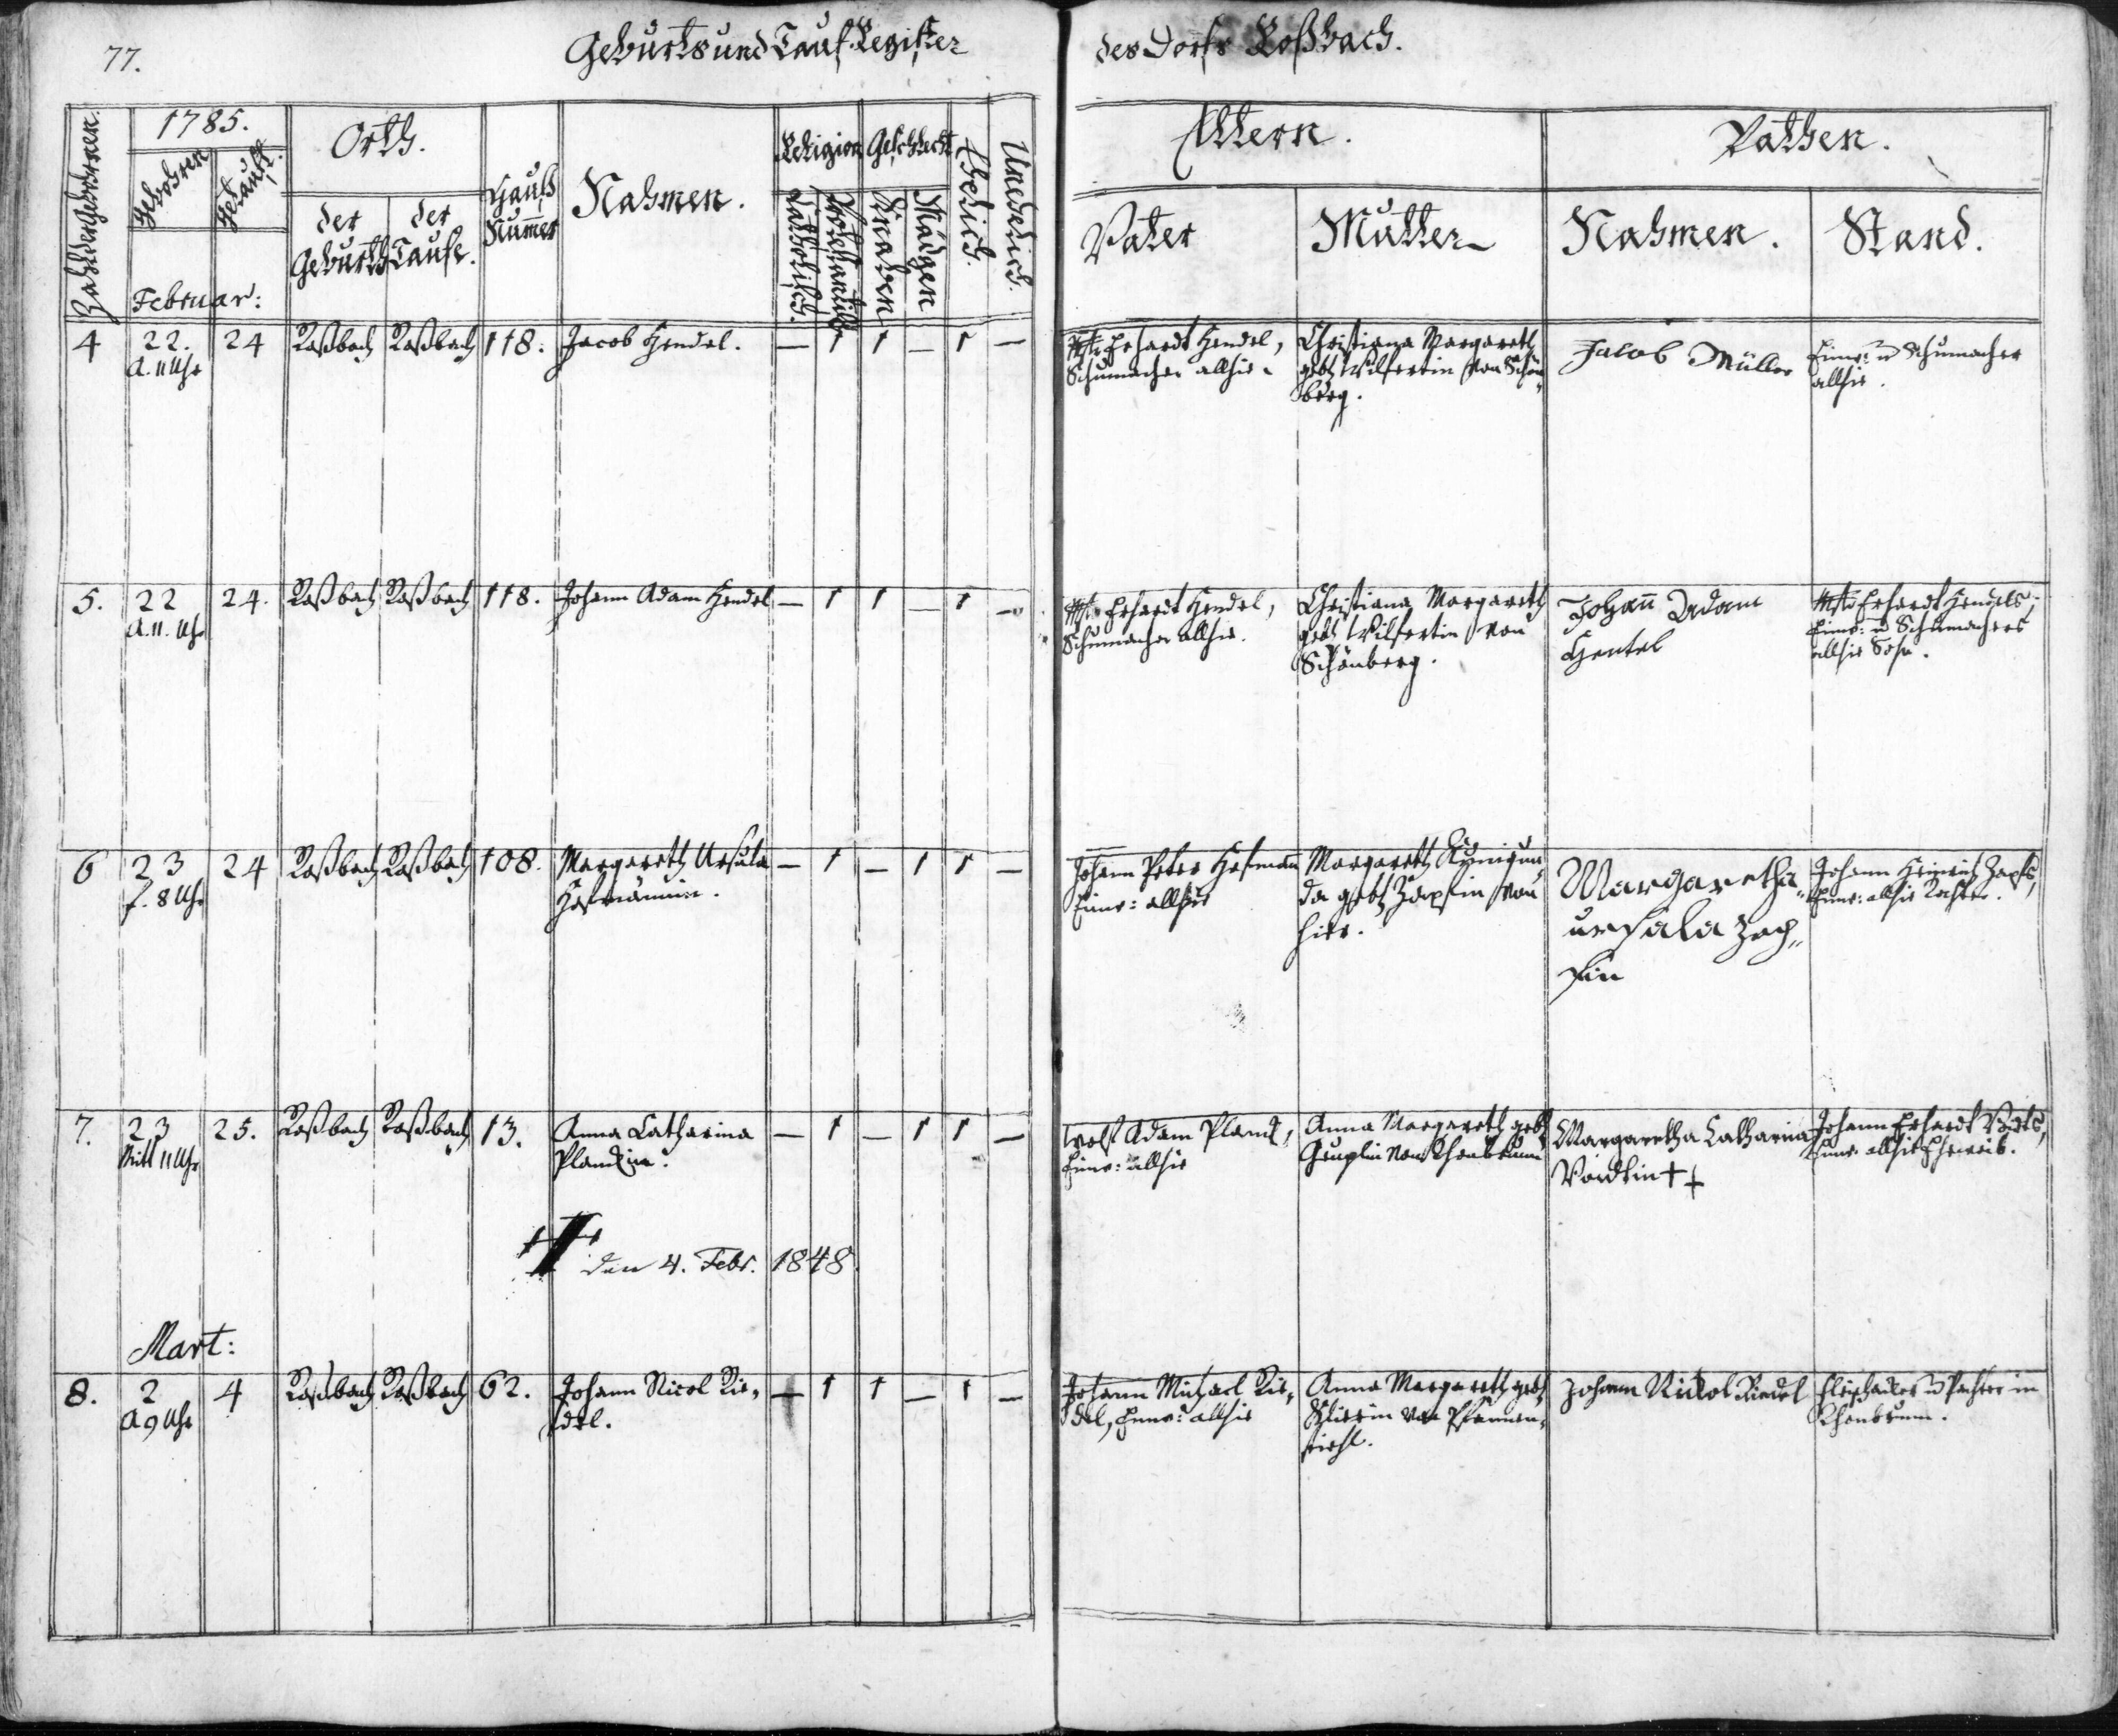 77.
Geburts und Tauf-Register
des Dorfs Roßbach.
Zahl der Gebohrnen.
1785.
Gebohren
Getauft.
Februar:
Orth.
der Geburth
der Taufe.
Hauß Num̄er
Nahmen.
Religion
Catholisch.
Protestantisch
Geschlecht
Knaben
Mädgen
Ehelich.
Unehelich.
Eltern.
Vater
Mutter
Pathen.
Nahmen.
Stand.
4
22.
A. 11 Uhr
24
Roßbach
Roßbach
118.
Jacob Hendel.
— 1 1 — 1 —
Mstr. Erhardt Hendel,
Schumacher allhie.
Christiana Margareth
gebh Wilfertin von Schön
berg.
Jacob Müller
Einw: u Schumacher
allhie.
5.
22
A. 11. Uhr
24.
Roßbach
Roßbach
118.
Johann Adam Hendel
— 1 1 — 1 —
Mstr. Erhardt Hendel,
Schumacher allhie.
Christiana Margareth
gebh Wilfertin von
Schönberg.
Johan̄ Adam
Hentel
Mstr Erhardt Hendels,
Einw: u Schumachers
allhie Sohn.
6
23
f. 8 Uhr
24
Roßbach
Roßbach
108.
Margareth Ursula
Hofmännin.
— 1 — 1 1 —
Johann Peter Hofmann
Einw: allhie
Margareth Kunigun,
da gebh Zapfin von
hier.
Margaretha
ursala Zap,,
fin
Johann Heinrich Zapfs,
Einw: allhie Tochter.
7.
23
Mitt 11 Uhr
25.
Roßbach
Roßbach
13.
Anna Catharina
Plandin.
— 1 — 1 1 —
den 4. Febr. 1848
Wolf Adam Pland,
Einw: allhie
Anna Margareth gebh
Geuplin von
Margaretha Catharina
Voidtin ++
Johann Erhardt Voits,
Einw. allhie Eheweib.
Mart:
8.
2
A 9 Uhr
4
Roßbach
Roßbach
62.
Johann Nicol Rie,
del.
— 1 1 — 1 —
Johann Michael Rie,
del, Einw: allhie
Anna Margareth gebh
von Pfannen,
stiehl.
Johann Nickol Riedel
u Pachter in